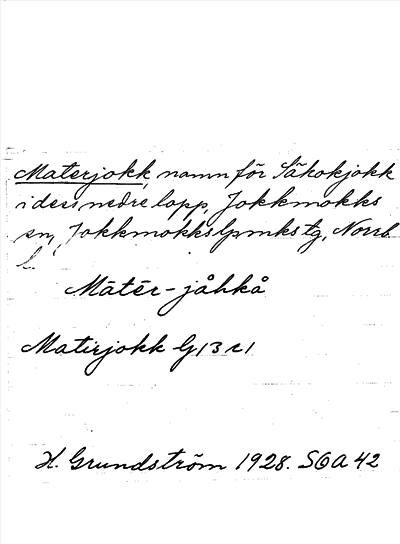 Materjokk, namn för Säkokjokk
i dess nedre lopp, Jokkmokks
sn, Jokkmokks lpmks tg, Norrb.
l.
Mātēr-jåhkå
Matirjokk G13 r1
H. Grundström 1928. SOA 42